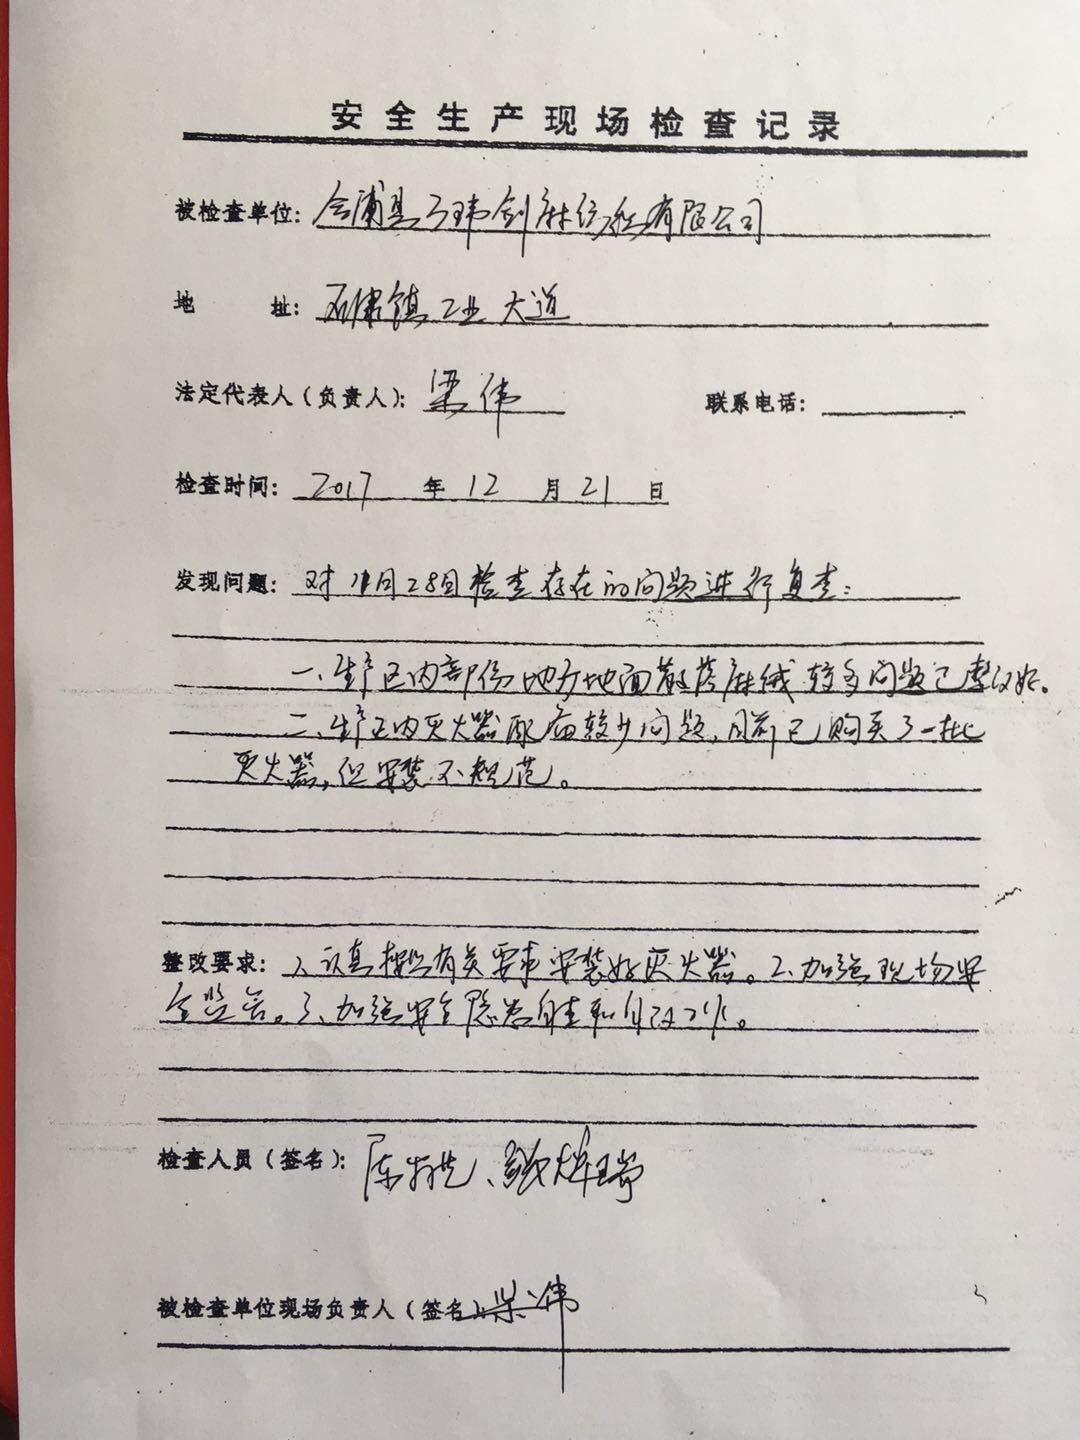 安全生产现场检查记录
被检查单位：合浦县子玮剑麻纺织有限公司
地　　址：石康镇工业大道
法定代表人（负责人）：梁伟　联系电话：
检查时间：2017年12月21日
发现问题：对11月28日检查存在的问题进行复查：
一、生产区内部份地方地面散落麻绒较多问题已整改好。
二、生产区内灭火器配备较少问题，目前已购买了一批
灭火器，但安装不规范。
整改要求：1、认真按照有关要求安装好灭火器。2、加强现场安
全监管。3、加强安全隐患自查和自改工作。
检查人员（签名）：陈
被检查单位现场负责人（签名）：梁伟